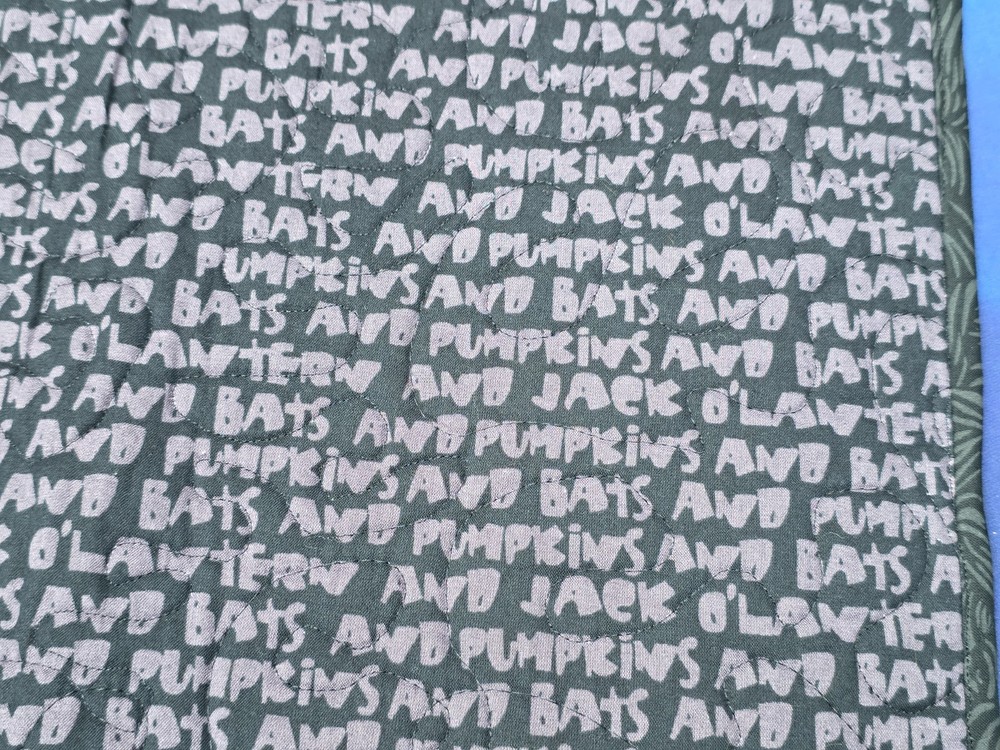 PUMPKINS AND BATS A
LANTERN AND JACK O'LANTER
PKINS AND BATS AND PUMPKINS AND BATS
ATS AND PUMPKINS AND BATS AND PUMPK
INS AND BATS AND PUMPKINS AND BATS A
CK O'LANTERN AND JACK O'LANTER
KINS AND BATS AND PUMPKINS AND BATS
TS AND PUMPKINS AND BATS AND PUMPK
S AND BATS AND PUMPKINS AND BATS A
CK O'LANTERN AND JACK O'LANTER
INS AND BATS AND PUMPKINS AND BATS
S AND PUMPKINS AND BATS AND PUMPK
AND BATS AND PUMPKINS AND BATS A
K O'LANTERN AND JACK O'LANTER
S AND BATS AND PUMPKINS AND BATS
AND PUMPKINS AND BATS AND PUMPK
AND BATS